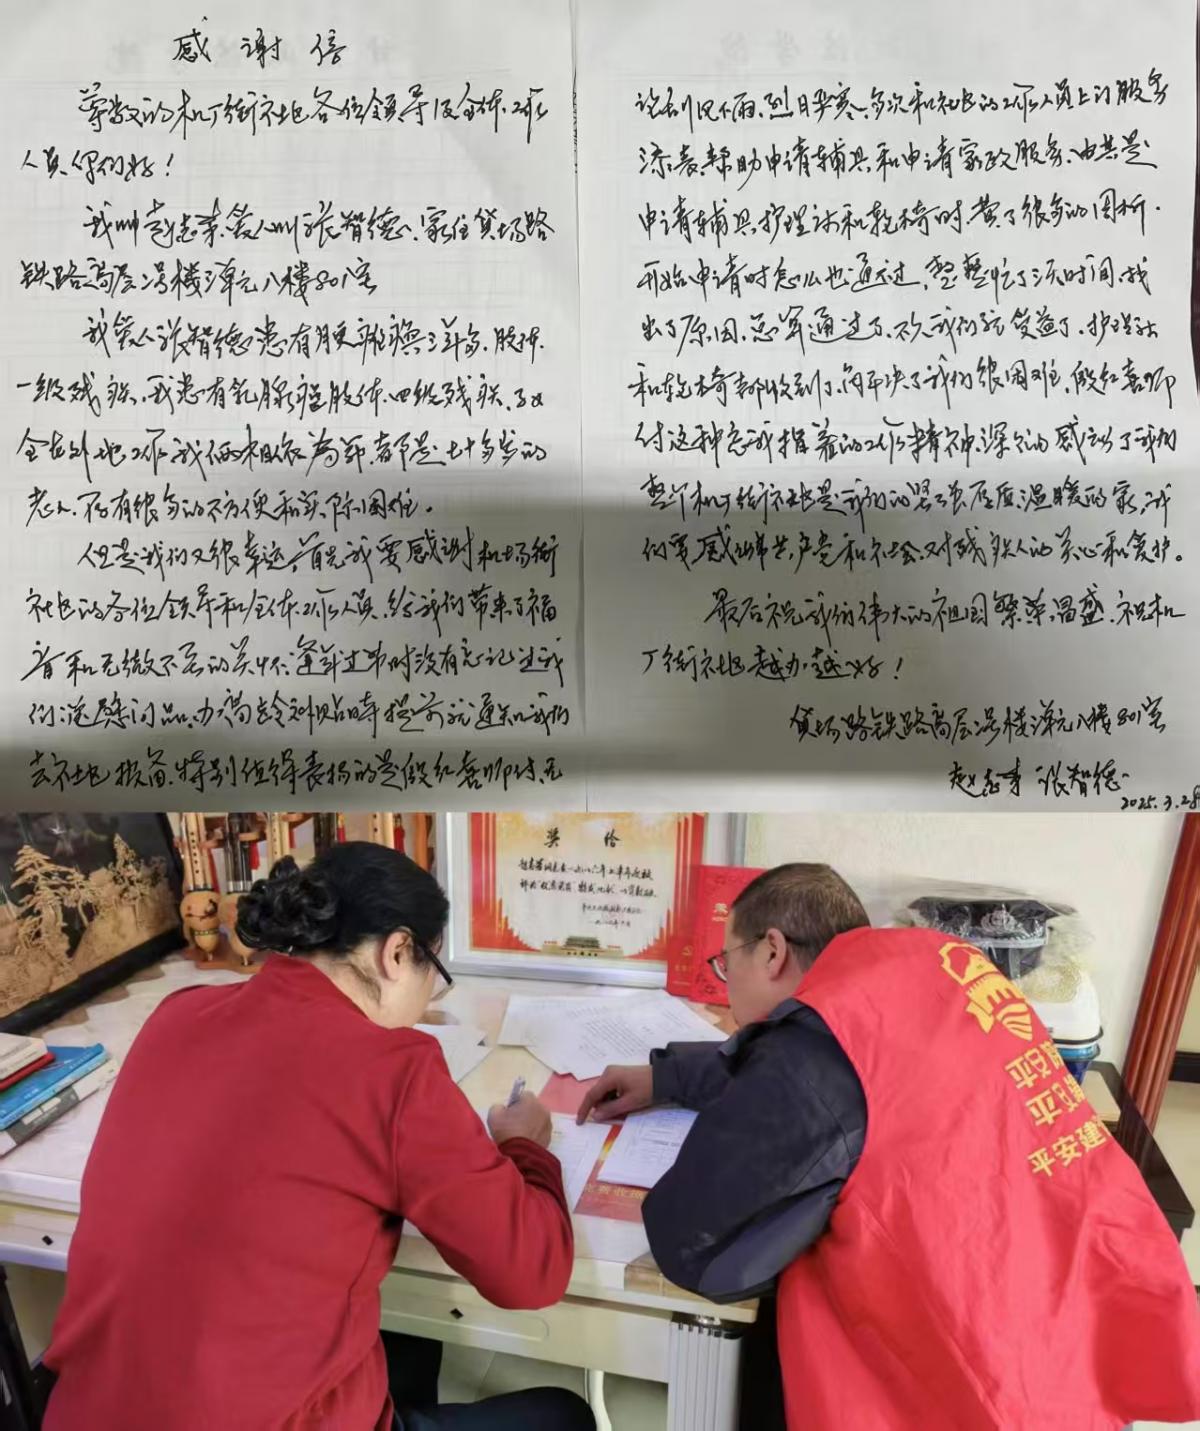 感谢信
尊敬的机厂街社区各位领导及全体工作
人员你们好！
我叫赵志荣,爱人叫张智德、家住货场路
铁路高层2号楼3单元八楼801室
我爱人张智德患有腰椎 三年多、肢体
一级残疾、我患有乳腺癌肢体四级残疾、子女
全在外地工作、我俩相依为命、都是七十多岁的
老人、存有很多的不方便和实际困难。
但是我们又很幸运、首先我要感谢机场街
社区的各位领导和全体工作人员、给我们带来了福
音和无微不至的关怀、逢年过节时没有忘记过我
们送慰问品、办高龄补贴时提前就通知我们
去社区报备、特别值得表扬的是段红喜师付、无
论刮风下雨、烈日严寒、多次和社区的工作人员上门服务
添表、帮助申请辅具和申请家政服务、尤其是
申请辅具、护理 和轮椅时、费了很多的周折.
开始申请时怎么也通不过、整整忙了三天时间、找
出了原因、总算通过了、不久我们就受益了、护理
和轮椅都收到了、解决了我们很困难、段红喜师
付这种忘我 的工作精神、深深的感动了我们
整个机厂街社区是我们的坚强后盾、温暖的家、我
们要感谢共产党和社会、对残疾人的关心和爱护。
最后祝我们伟大的祖国繁荣昌盛、祝机
厂街社区越办越好！
货场路铁路高层2号楼3单元八楼801室
赵志荣 张智德
2025.3.28
奖给
平安建